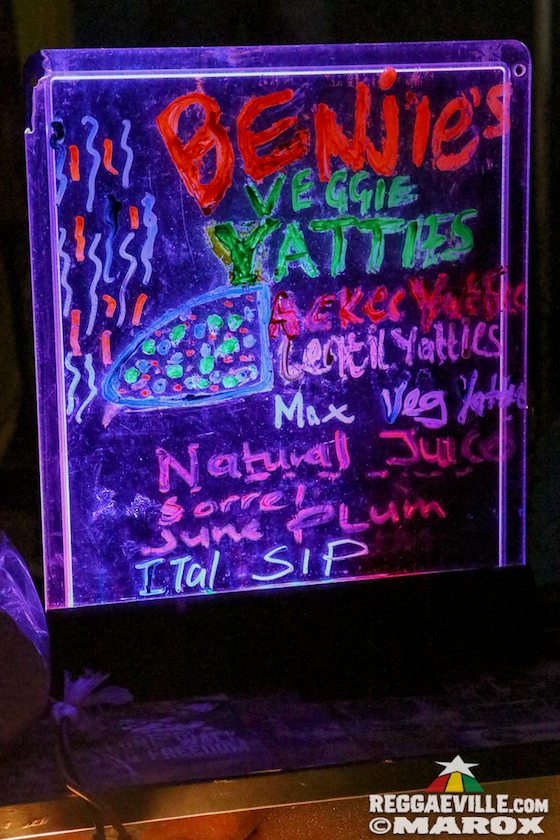 BENjie's
VEGGIE
YATTIES
Ackee Yattie
Lentil Yatties
Mix Veg Yattie
Natural Juices
Sorrel
June PLum
ITal SIP
REGGAEVILLE.com
©MAROX